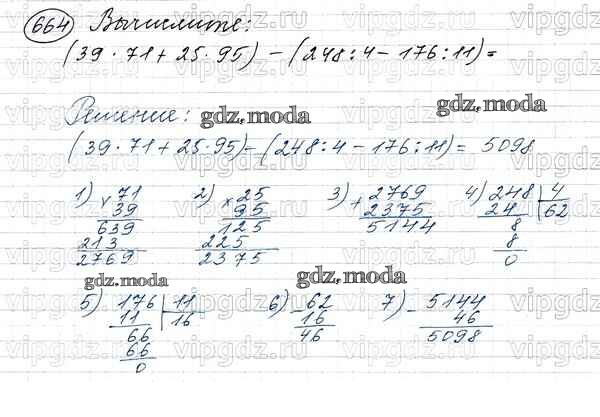 664 Вычислите:
(39·71+25·95)-(248:4-176:11)=
Решение: gdz.moda gdz.moda
(39·71+25·95)-(248:4-176:11)= 5098
1) 71 2) 25 3) 2769 4) 248 4
× 39 × 95 + 2375 24 62
639 125 5144 8
213 225 8
2769 2375 0
gdz.moda gdz.moda
5) 176 11 6) -62 7) - 5144
11 16 16 46
66 46 5098
66
0